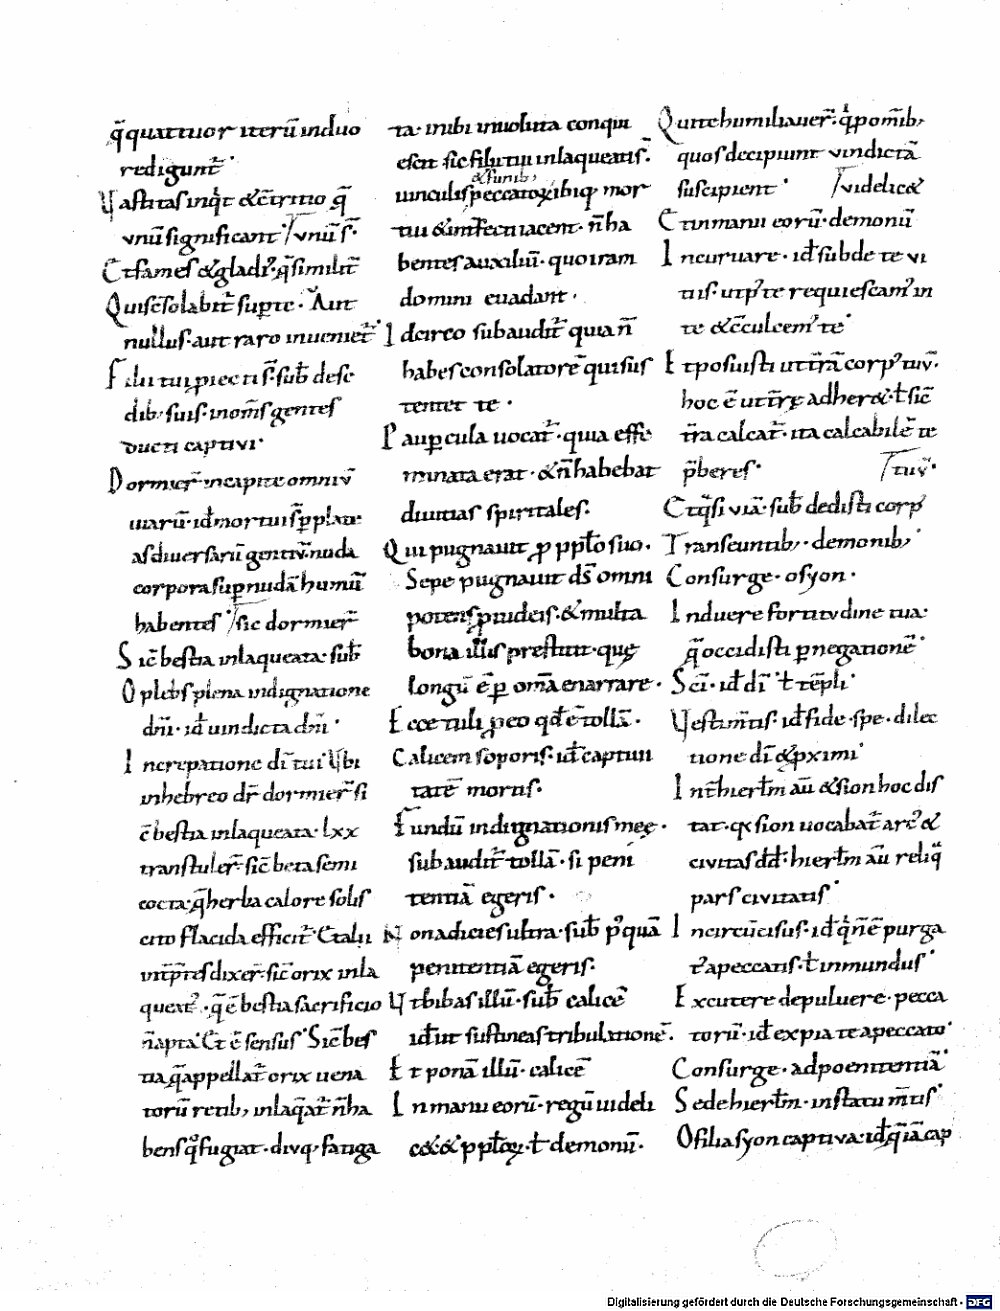 q̄ quattuor iterū induo
redigunt̄·
Vastitas inqͥt &c̄tritio q̄
vnū significant / vnū s̄·
Et fames & gladiꝰ· q̄ similit̄
Quis c̄solabit̄ sup te· Aut
nullus· aut raro inueniet̄·
Filii tui ꝓiecti s̄· sub̄ dese
dib; suis· in om̄s gentes
ducti captivi·
Dormier̄ in capite omniv̄
uiarū· id̄ mortui s̄ p plate
as diuersarū gentiv̄· nuda
corpora sup nudā humū
habentes / sic dormier̄
Sic̄ bestia inlaqueata· sub̄
O plebs plena indignatione
dn̄i· id̄ uindicta dn̄i·
Increpatione dī tui· Vbi
in hebreo dr̄ dormier̄ si
c̄ bestia inlaqueata· lxx
transtuler̄· sic̄ beta semi
cocta· q̄ herba calore solis
cito flacida efficit̄· Et alii
int̄p̄tes dixer̄· sic̄ orix inla
queatꝰ· q̄ ē bestia sacrificio
n̄ apta· Et ē sensus· Sic̄ bes
tia q̄ appellat̄ orix uena
torū retib; inlaq̄at̄ n̄ ha
bens qͦ fugiat· divq; fatiga
ta· inibi inuoluta conqui
escit sic filii tui inlaqueati s̄·
& funib;
uinculis peccatoꝝ ibiq; mor
tui & interfecti iacent· n̄ ha
bentes auxiliū· quo iram
domini euadant·
Idcirco subaudit̄ quia n̄
habes consolatorē qui sus
tentet te·
Paupcula uocat̄· quia effe
minata erat· & n̄ habebat
diuitias spiritales·
Qui pugnauit ꝓ pplo suo·
Sepe pugnauit ds̄ omni
potens ꝓ iudeis· & multa
bona illis prestitit· quę
longū ē p om̄a enarrare·
Ecce tuli ꝓ eo qd̄ ē tollā·
Calicem soporis· id̄ captiui
tatē mortis·
Fundū indignationis meę·
subaudit̄ tollā· si peni
tentiā egeris·
Non adicies ultra· sub̄ pꝰquā
penitentiā egeris·
Vt bibas illū· sub̄ calicē
id̄ ut sustineas tribulationē·
Et ponā illū· calicē
In manu eorū· regū uideli
c& & pploꝝ· ł demonū·
Qui te humiliauer̄· q̇ pom̄ib;
quos decipiunt vindictā
suscipient· / videlic&
Et in manu eorū· demonū
Incuruare· id̄ subde te vi
tiis· ut p te requiescamꝰ in
te & c̄culcemꝰ te·
Et posuisti ut t̄rā corpꝰ tuv̄·
hoc ē ut t̄rę adher&· ł sic̄
t̄ra calcat̄· ita calcabilē te
p̄beres· / tuv̄·
Et q̄si viā· sub̄ dedisti corpꝰ
Transeuntib;· demonib;·
Consurge· o syon·
Induere fortitvdine tua·
q̄ occidisti p negationē·
Sci· id̄ dī· ł tēpli·
Vestim̄tis· id̄ fide· spe· dilec
tione dī & ꝓximi·
Int̄ hierłm aū & sion hoc dis
tat· qa sion uocabat̄ arx &
civitas dd̄· hierłm aū reliq̄
pars civitatis·
Incircūcisus· id̄ qͥ n̄ ē purga
tꝰ a peccatis· ł inmundus·
Excutere de puluere· pecca
torū· id̄ expia te a peccato·
Consurge· ad poenitentiā·
Sede hierłm· in statu m̄tis·
O filia syon captiva· id̄ q̄ iā cap
Digitalisierung gefördert durch die Deutsche Forschungsgemeinschaft - DFG